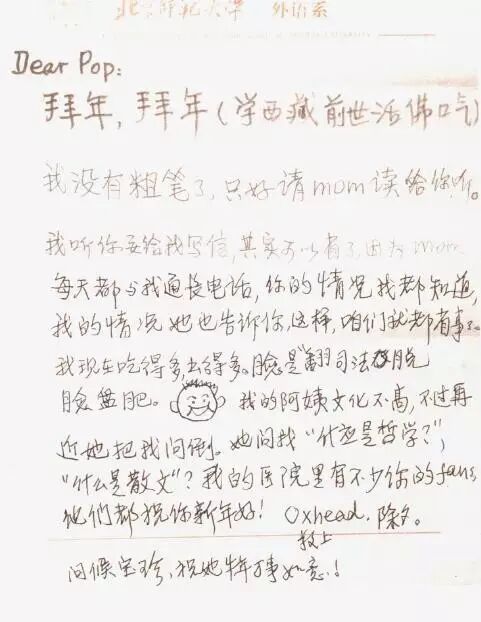 北京师范大学 外语系
Dear Pop:
拜年,拜年(学西藏前世活佛口气)
我没有粗笔了,只好请mom读给你听。
我听你要给我写信,其实可以省了,因为mom
每天都与我通长电话,你的情况我都知道,
我的情况她也告诉你,这样,咱们就都省事了。
我现在吃得多,出得多。脸是“翻司法脱
脸盘肥。 我的阿姨文化不高,不过
近她把我问倒。她问我“什么是哲学?”,
“什么是散文”?我的医院里有不少你的fans,
他们都祝你新年好! Oxhead. 除夕。
敬上
问候宝珍、祝她事如意!